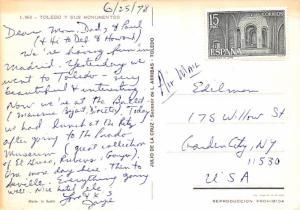 6/25/78
L.162 - TOLEDO Y SUS MONUMENTOS
Dear Mom, Daddy, & Paul
(& Hi to Del & Howard)
We're having fun in
Madrid. Yesterday we
went to Toledo - very
beautiful & interesting
Now we're at the Ballet
(Maurice Bejart, Director) Today
we had lunch at the Ritz
after going to the Prado
Museum (great collection
of El Greco, Rubens, Goya).
One more day here. Then to
Seville. Everything going
well. Nice hotel
Love & X's
JULIO DE LA CRUZ - Sucesor de L. ARRIBAS - TOLEDO
Air Mail
15 PTA CORREOS
ESPAÑA
Edilman
175 Willow St
Garden City, NY
11530
USA
REPRODUCCIÓN PROHIBIDA